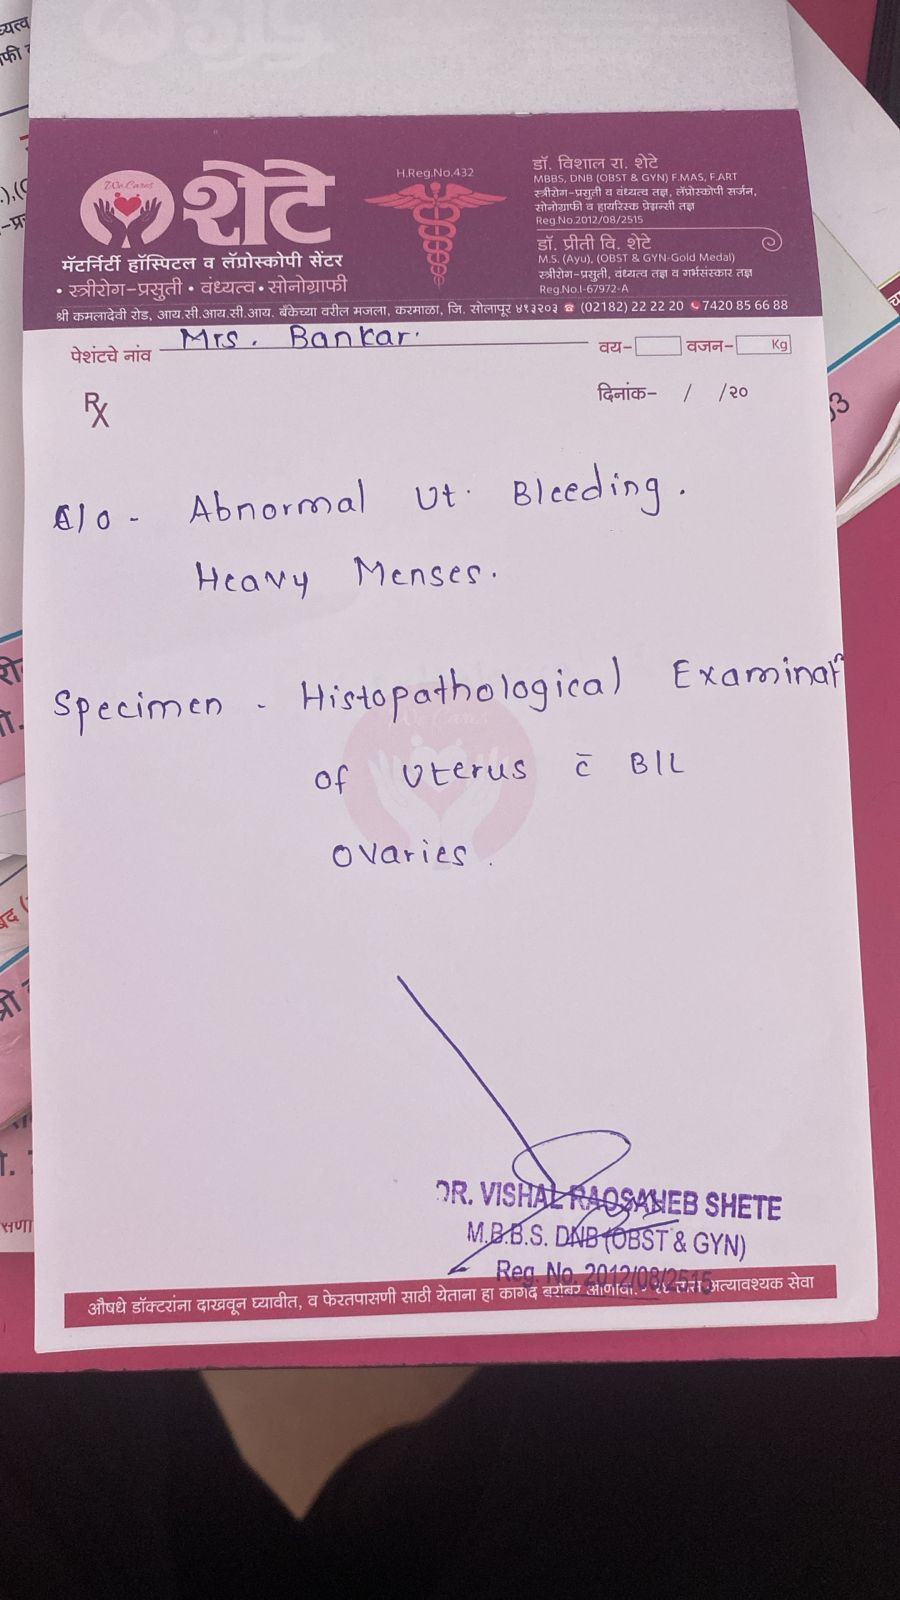 We Care
शेटे
मॅटर्निटी हॉस्पिटल व लॅप्रोस्कोपी सेंटर
• स्त्रीरोग-प्रसुती • वंध्यत्व • सोनोग्राफी
H.Reg.No.432
डॉ. विशाल रा. शेटे
MBBS, DNB (OBST & GYN) F.MAS, F.ART
स्त्रीरोग-प्रसुती व वंध्यत्व तज्ञ, लॅप्रोस्कोपी सर्जन,
सोनोग्राफी व हायरिस्क प्रेग्नन्सी तज्ञ
Reg.No.2012/08/2515
डॉ. प्रीती वि. शेटे
M.S. (Ayu), (OBST & GYN-Gold Medal)
स्त्रीरोग-प्रसुती, वंध्यत्व तज्ञ व गर्भसंस्कार तज्ञ
Reg.No.I-67972-A
श्री कमलादेवी रोड, आय.सी.आय.सी.आय. बँकेच्या वरील मजला, करमाळा, जि. सोलापूर ४१३२०३ (02182) 22 22 20 7420 85 66 88
पेशंटचे नांव Mrs. Bankar. वय- वजन- Kg
Rx दिनांक- / /२०
C/o - Abnormal Ut. Bleeding.
Heavy Menses.
Specimen - Histopathological Examinatn
of Uterus c̄ B/L
ovaries.
We Cares
DR. VISHAL RAOSAHEB SHETE
M.B.B.S. DNB (OBST & GYN)
Reg. No. 2012/08/2515
औषधे डॉक्टरांना दाखवून घ्यावीत, व फेरतपासणी साठी येताना हा कागद बरोबर आणावा. अत्यावश्यक सेवा